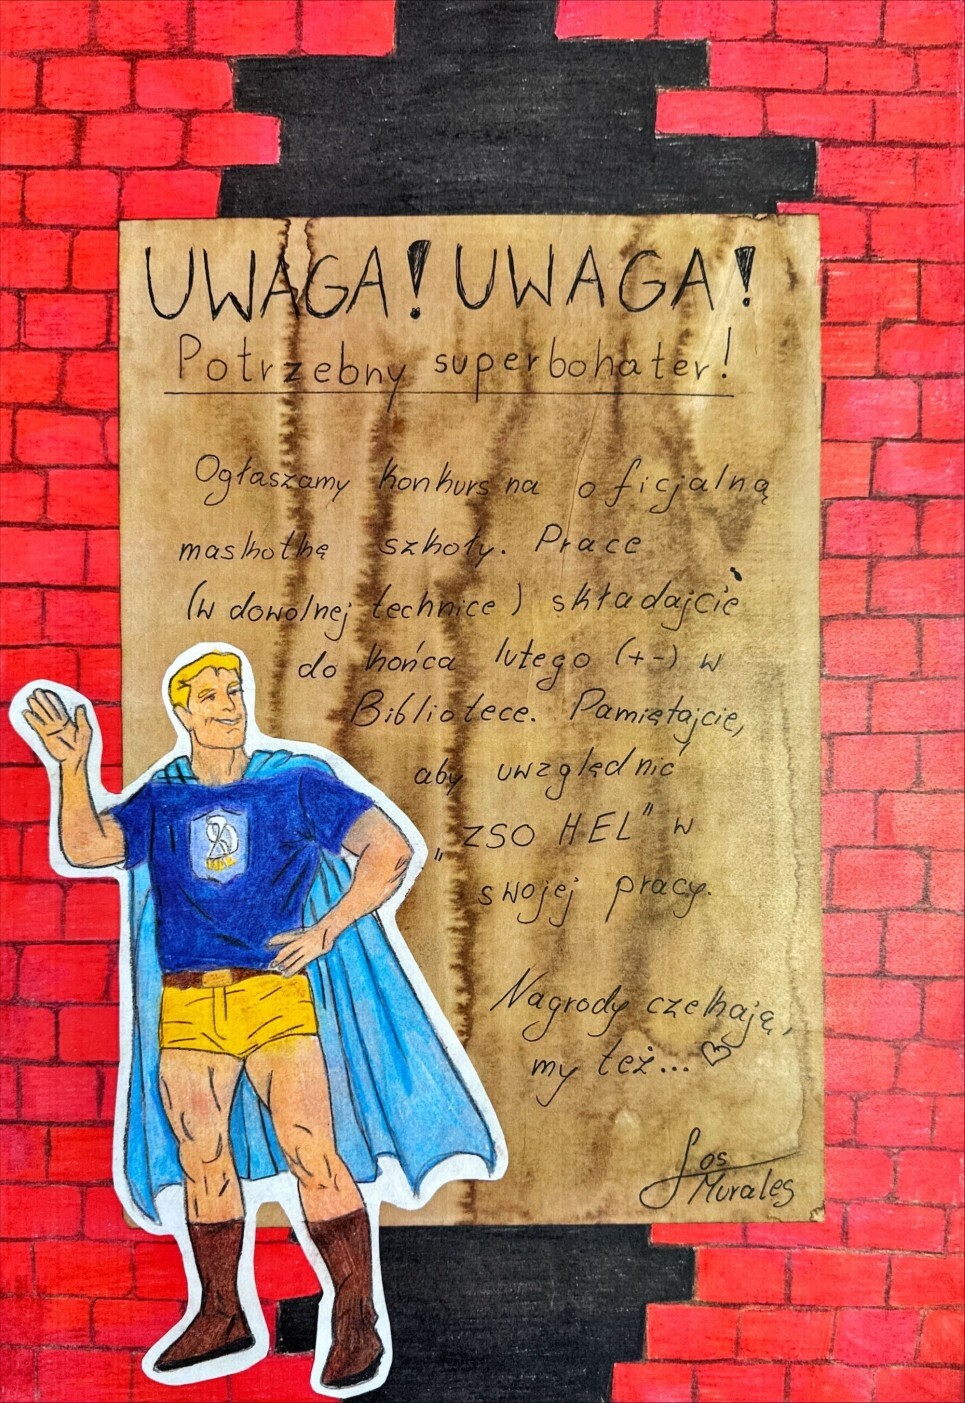 UWAGA! UWAGA!
Potrzebny superbohater!
Ogłaszamy konkurs na oficjalną
maskotkę szkoły. Prace
(w dowolnej technice) składajcie
do końca lutego (+-) w
Bibliotece. Pamiętajcie,
aby uwzględnić
„ZSO HEL" w
swojej pracy.
Nagrody czekają,
my też...
Los
Murales